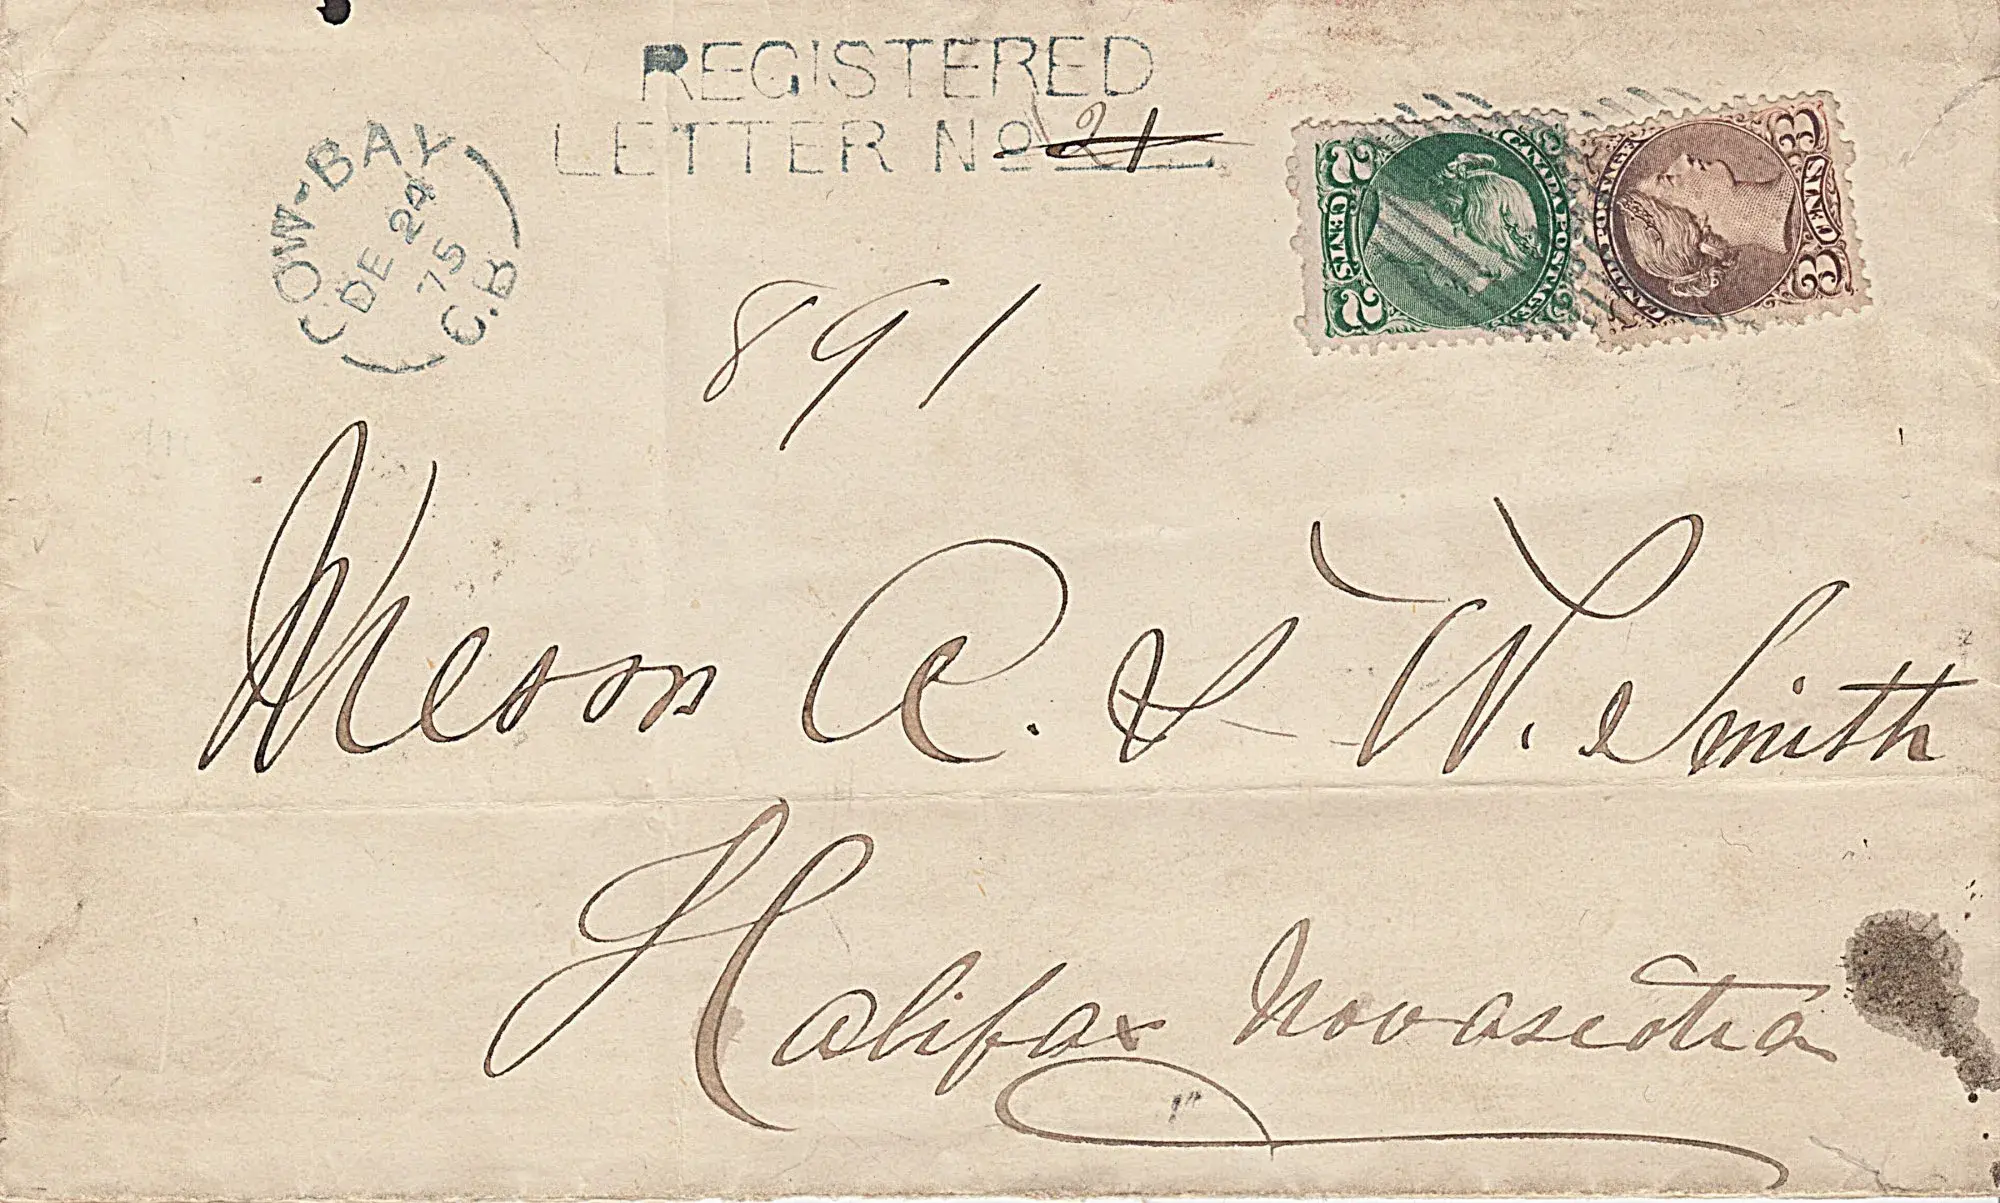 REGISTERED
LETTER No 21
COW-BAY
DE 24
75
C.B
2 CENTS 2
CANADA POSTAGE
3 CENTS 3
CANADA POSTAGE
891
Messrs A. & W. Smith
Halifax Novascotia